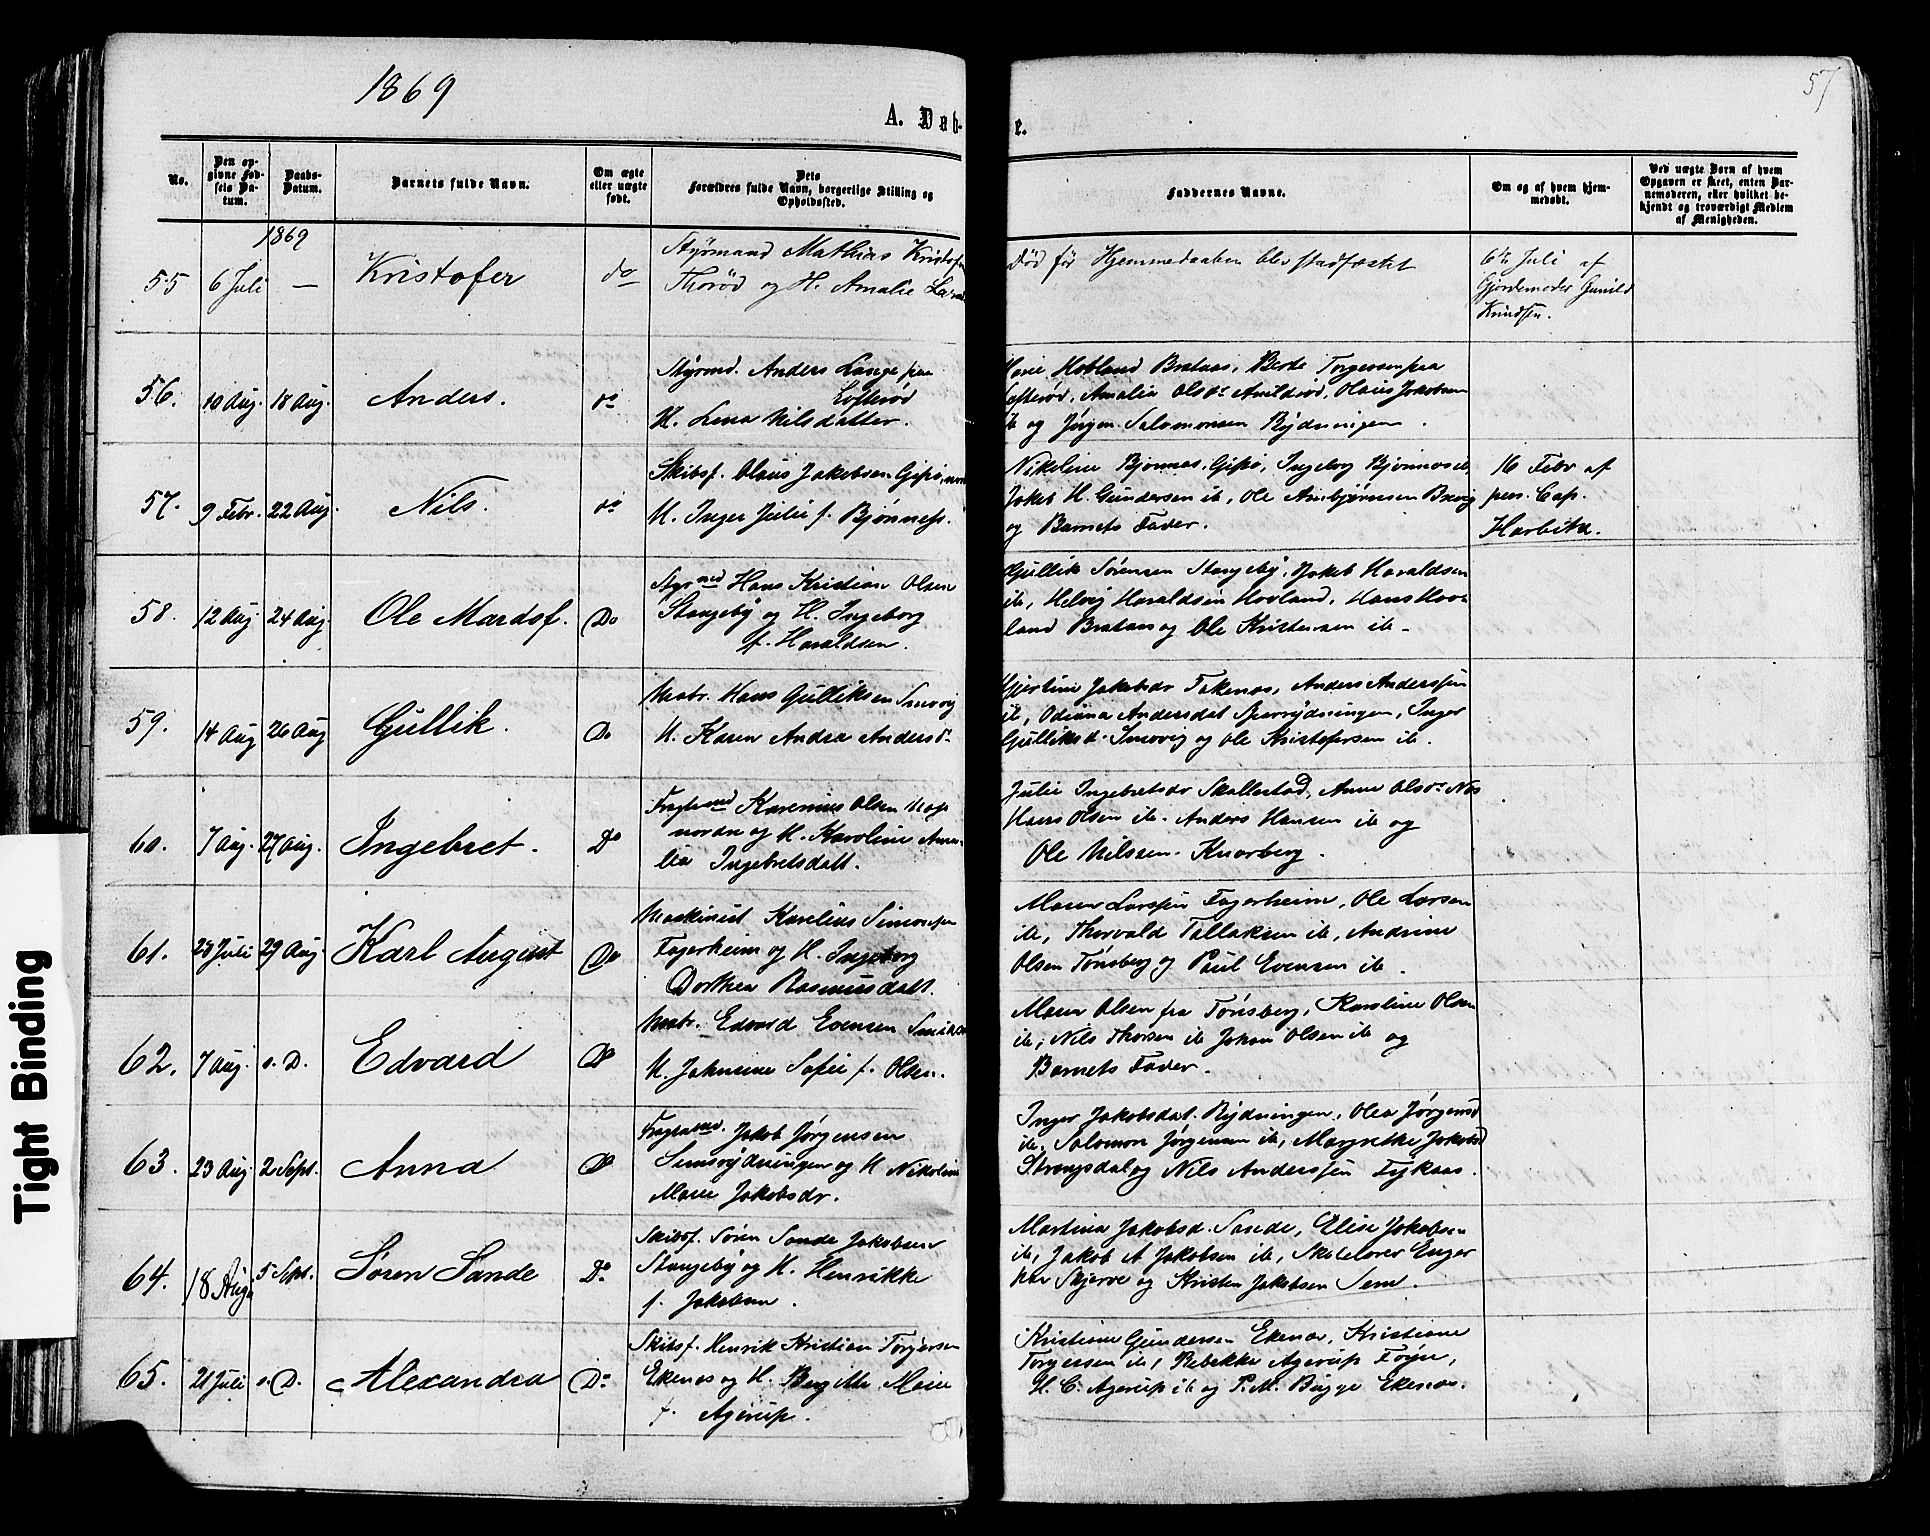 1869
57
A. Døb-
e.
No.
Den op-
givne Fød-
sels Da-
tum.
Daabs-
Datum.
Barnets fulde Navn.
Om ægte
eller uægte
født.
Dets
Forældres fulde Navn, borgerlige Stilling og
Opholdssted.
Faddernes Navne.
Om og af hvem hjem-
medøbt.
Ved uægte Børn af hvem
Opgaven er skeet, enten Bar-
nemoderen, eller hvilket be-
kjendt og troværdigt Medlem
af Menigheden.
1869
55 6 Juli — Kristofer do
Styrmand Mathias Kristofer
Thorød og H. Amalie
Død før Hjemmedaaben blev stadfæstet
6te Juli af
Gjordemoder Gunild
Knudsen.
56. 10 Aug. 18 Aug. Anders. do
Styrmd. Anders Lange paa
Lofterød
H. Lena Nilsdatter.
Hovland Brataas, Berte Torgersen paa
Amalia Olsdr Olaus Jakobsen
og Jørgen Salomonsen Rydningen.
57. 9 Febr. 22 Aug. Nils. do
Skibsf. Olaus Jakobsen Gipø,
H. Inger Julie f. Bjønnes.
Nikoline Bjønnes, Gipø, Ingeborg Bjønnes
Jakob H. Gundersen ib, Ole Ambjørnsen Brevig
og Barnets Fader.
16 Febr af
pers. Cap.
Harbitz.
58. 12 Aug 24 Aug Ole Mardof. Do
Styrmd Hans Kristian Olsen
Stangeby og H. Ingeborg
f. Haraldsen.
Gullik Sørensen Stangeby, Jakob Haraldsen
ib, Helvig Haraldsen Hovland, Hans Hov-
land Brataas og Ole Kristensen ib.
59. 14 Aug 26 Aug Gullik. Do
Matr. Hans Gulliksen Smevig
H. Karen Andrea Andersdr
Jakobsdr Takenes, Anders Anderssen
ib, Odiana Andersdat Inger
Gulliksd. Smevig og Ole Kristofersen ib.
60. 7 Aug. 27 Aug. Ingebret. Do
Fragtemd Karenius Olsen
nordre og H. Karoline Ama-
lia Ingebretsdatt.
Julie Ingebretsdr Skallestad, Anne Olsdr Nes
Hans Olsen ib. Anders Hansen ib og
Ole Nilssen Knarberg.
61. 28 Juli 29 Aug Karl August Do
Maskinist Karelius Simonsen
Fagerheim og H. Ingeborg
Dorthea Rasmusdatt.
Maren Larssen Fagerheim, Ole Larsen
ib, Thorvald Tallaksen ib, Andrine
Olsen Tønsberg og Paul Evensen ib.
62. 7 Aug. s. D. Edvard Do
Matr. Edvard Evensen
H. Johnsine Sofie f. Olsen.
Maren Olsen fra Tønsberg, Karoline Olsen
ib, Nils Thorsen ib Johan Olsen ib og
Barnets Fader.
63. 23 Aug 2 Sept. Anna Do
Fragtemd. Jakob Jørgensen
Semsrydningen og H Nikoline
Marie Jakobsdr.
Inger Jakobsdat. Rydningen, Olea Jørgensd
ib, Salomon Jørgensen ib, Margrethe Jakobsd
Strengsdal og Nils Anderssen Fykaas.
64. 18 Aug 5 Sept. Søren Sande Do
Skibsf. Søren Sande Jakobsen
Stangeby og H. Henrikke
f. Jakobsen.
Martina Jakobsd. Sande, Elise Jakobsen
ib, Jakob A Jakobsen ib, Skolelærer Enger
paa Skjerve og Kristen Jakobsen Sem.
65. 21 Juli s. D. Alexandra Do
Skibsf. Henrik Kristian Torgersen
Ekenes og H. Bergitte Marie
f. Agerup.
Kristiane Gundersen Ekenes, Kristiane
Torgersen ib, Rebekka Agerup Føyn,
H. C. Agerup ib og P. M. Bugge Ekenes.
Tight Binding